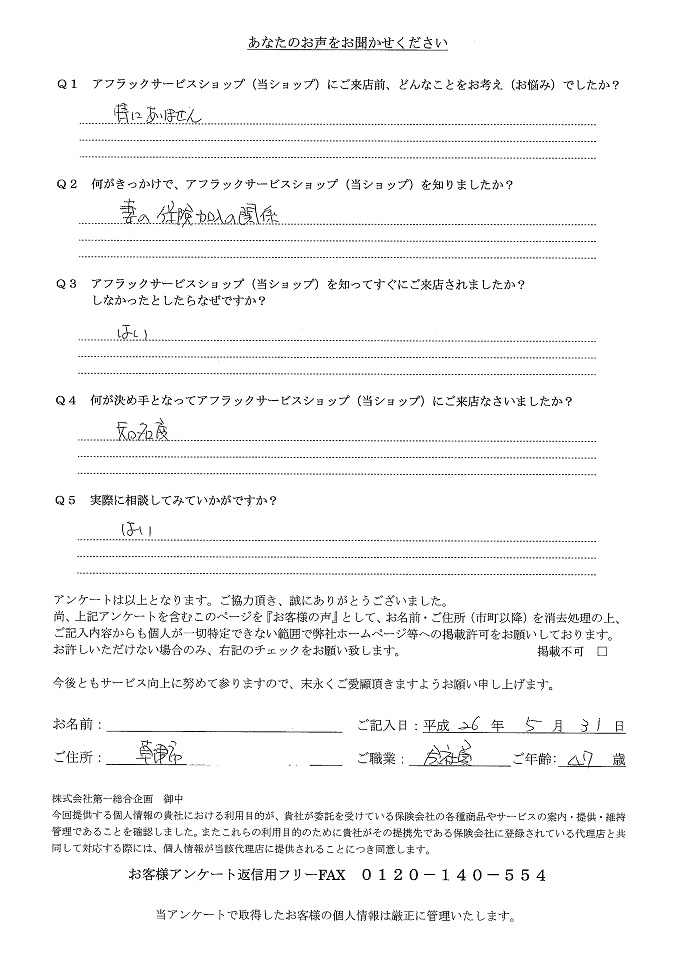 あなたのお声をお聞かせください
Q1 アフラックサービスショップ（当ショップ）にご来店前、どんなことをお考え（お悩み）でしたか？
特にありません
Q2 何がきっかけで、アフラックサービスショップ（当ショップ）を知りましたか？
妻の保険加入の関係
Q3 アフラックサービスショップ（当ショップ）を知ってすぐにご来店されましたか？
しなかったとしたらなぜですか？
はい
Q4 何が決め手となってアフラックサービスショップ（当ショップ）にご来店なさいましたか？
知名度
Q5 実際に相談してみていかがですか？
はい
アンケートは以上となります。ご協力頂き、誠にありがとうございました。
尚、上記アンケートを含むこのページを『お客様の声』として、お名前・ご住所（市町以降）を消去処理の上、
ご記入内容からも個人が一切特定できない範囲で弊社ホームページ等への掲載許可をお願いしております。
お許しいただけない場合のみ、右記のチェックをお願い致します。 掲載不可 □
今後ともサービス向上に努めて参りますので、末永くご愛顧頂きますようお願い申し上げます。
お名前： ご記入日：平成 26 年 5 月 31 日
ご住所： 草津市 ご職業： 会社員 ご年齢： 47 歳
株式会社第一総合企画 御中
今回提供する個人情報の貴社における利用目的が、貴社が委託を受けている保険会社の各種商品やサービスの案内・提供・維持
管理であることを確認しました。またこれらの利用目的のために貴社がその提携先である保険会社に登録されている代理店と共
同して対応する際には、個人情報が当該代理店に提供されることにつき同意します。
お客様アンケート返信用フリーFAX 0120－140－554
当アンケートで取得したお客様の個人情報は厳正に管理いたします。